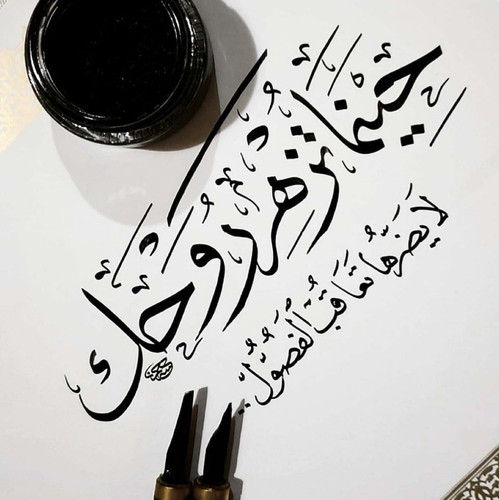 حينما تزهر روحك
لا يضرها تعاقب الفصول..